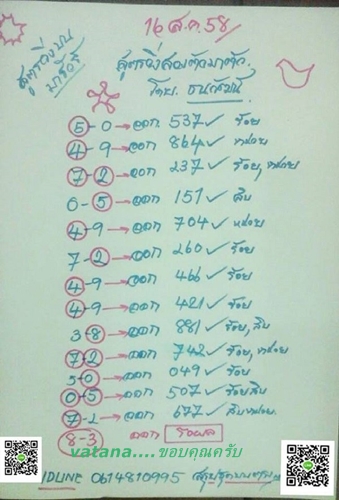 16 ส.ค. 58
สูตรวิ่งบน
มาชัวร์
สูตรวิ่งสองตัวมาตัว
โดย. ธนวัฒน์
5-0 → ออก 537 ✓ ร้อย
4-9 → ออก 864 ✓ หน่วย
7-2 → ออก 237 ✓ ร้อย, หน่วย
0-5 → ออก 151 ✓ สิบ
4-9 → ออก 704 ✓ หน่วย
7-2 → ออก 260 ✓ ร้อย
4-9 → ออก 466 ✓ ร้อย
4-9 → ออก 421 ✓ ร้อย
3-8 → ออก 881 ✓ ร้อย, สิบ
7-2 → ออก 742 ✓ ร้อย, หน่วย
5-0 → ออก 049 ✓ ร้อย
0-5 → ออก 507 ✓ ร้อยสิบ
7-2 → ออก 677 ✓ สิบหน่วย
8-3 ออก รอผล
vatana.... ขอบคุณครับ
IDLINE 0614810995